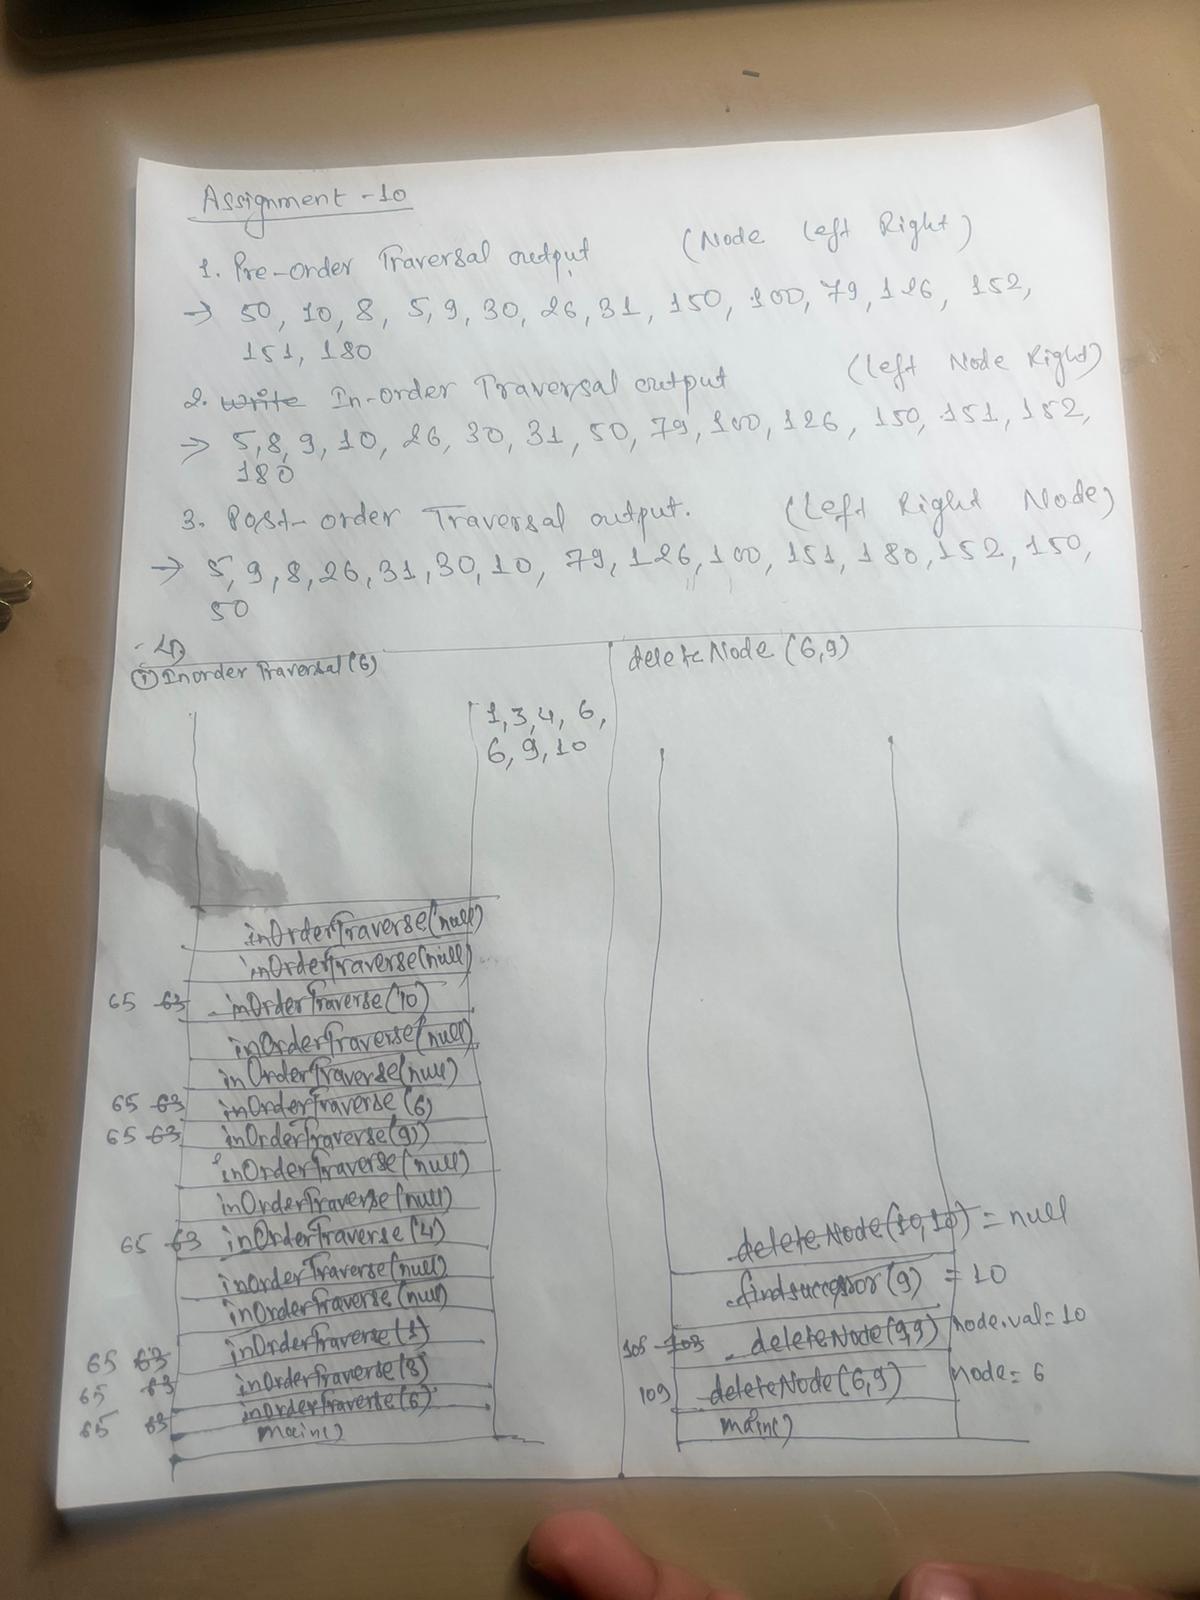 Assignment - 10
1. Pre-order Traversal output (Node Left Right)
→ 50, 10, 8, 5, 9, 30, 26, 31, 150, 100, 79, 126, 152,
151, 180
2. Write In-order Traversal output (Left Node Right)
→ 5, 8, 9, 10, 26, 30, 31, 50, 79, 100, 126, 150, 151, 152,
180
3. Post-order Traversal output. (Left Right Node)
→ 5, 9, 8, 26, 31, 30, 10, 79, 126, 100, 151, 180, 152, 150,
50
4)
① Inorder Traversal (6)
1, 3, 4, 6,
6, 9, 10
inOrderTraverse(null)
inOrderTraverse(null)
65 63 inOrderTraverse(10)
inOrderTraverse(null)
inOrderTraverse(null)
65 63 inOrderTraverse(6)
65 63 inOrderTraverse(9)
inOrderTraverse(null)
inOrderTraverse(null)
65 63 inOrderTraverse(4)
inOrderTraverse(null)
inOrderTraverse(null)
65 63 inOrderTraverse(1)
65 63 inOrderTraverse(3)
65 63 inOrderTraverse(6)
main()
deleteNode (6,9)
deleteNode(10,10) = null
findsuccessor(9) = 10
105 103 deleteNode(9,9) node.val=10
109 deleteNode(6,9) node=6
main()